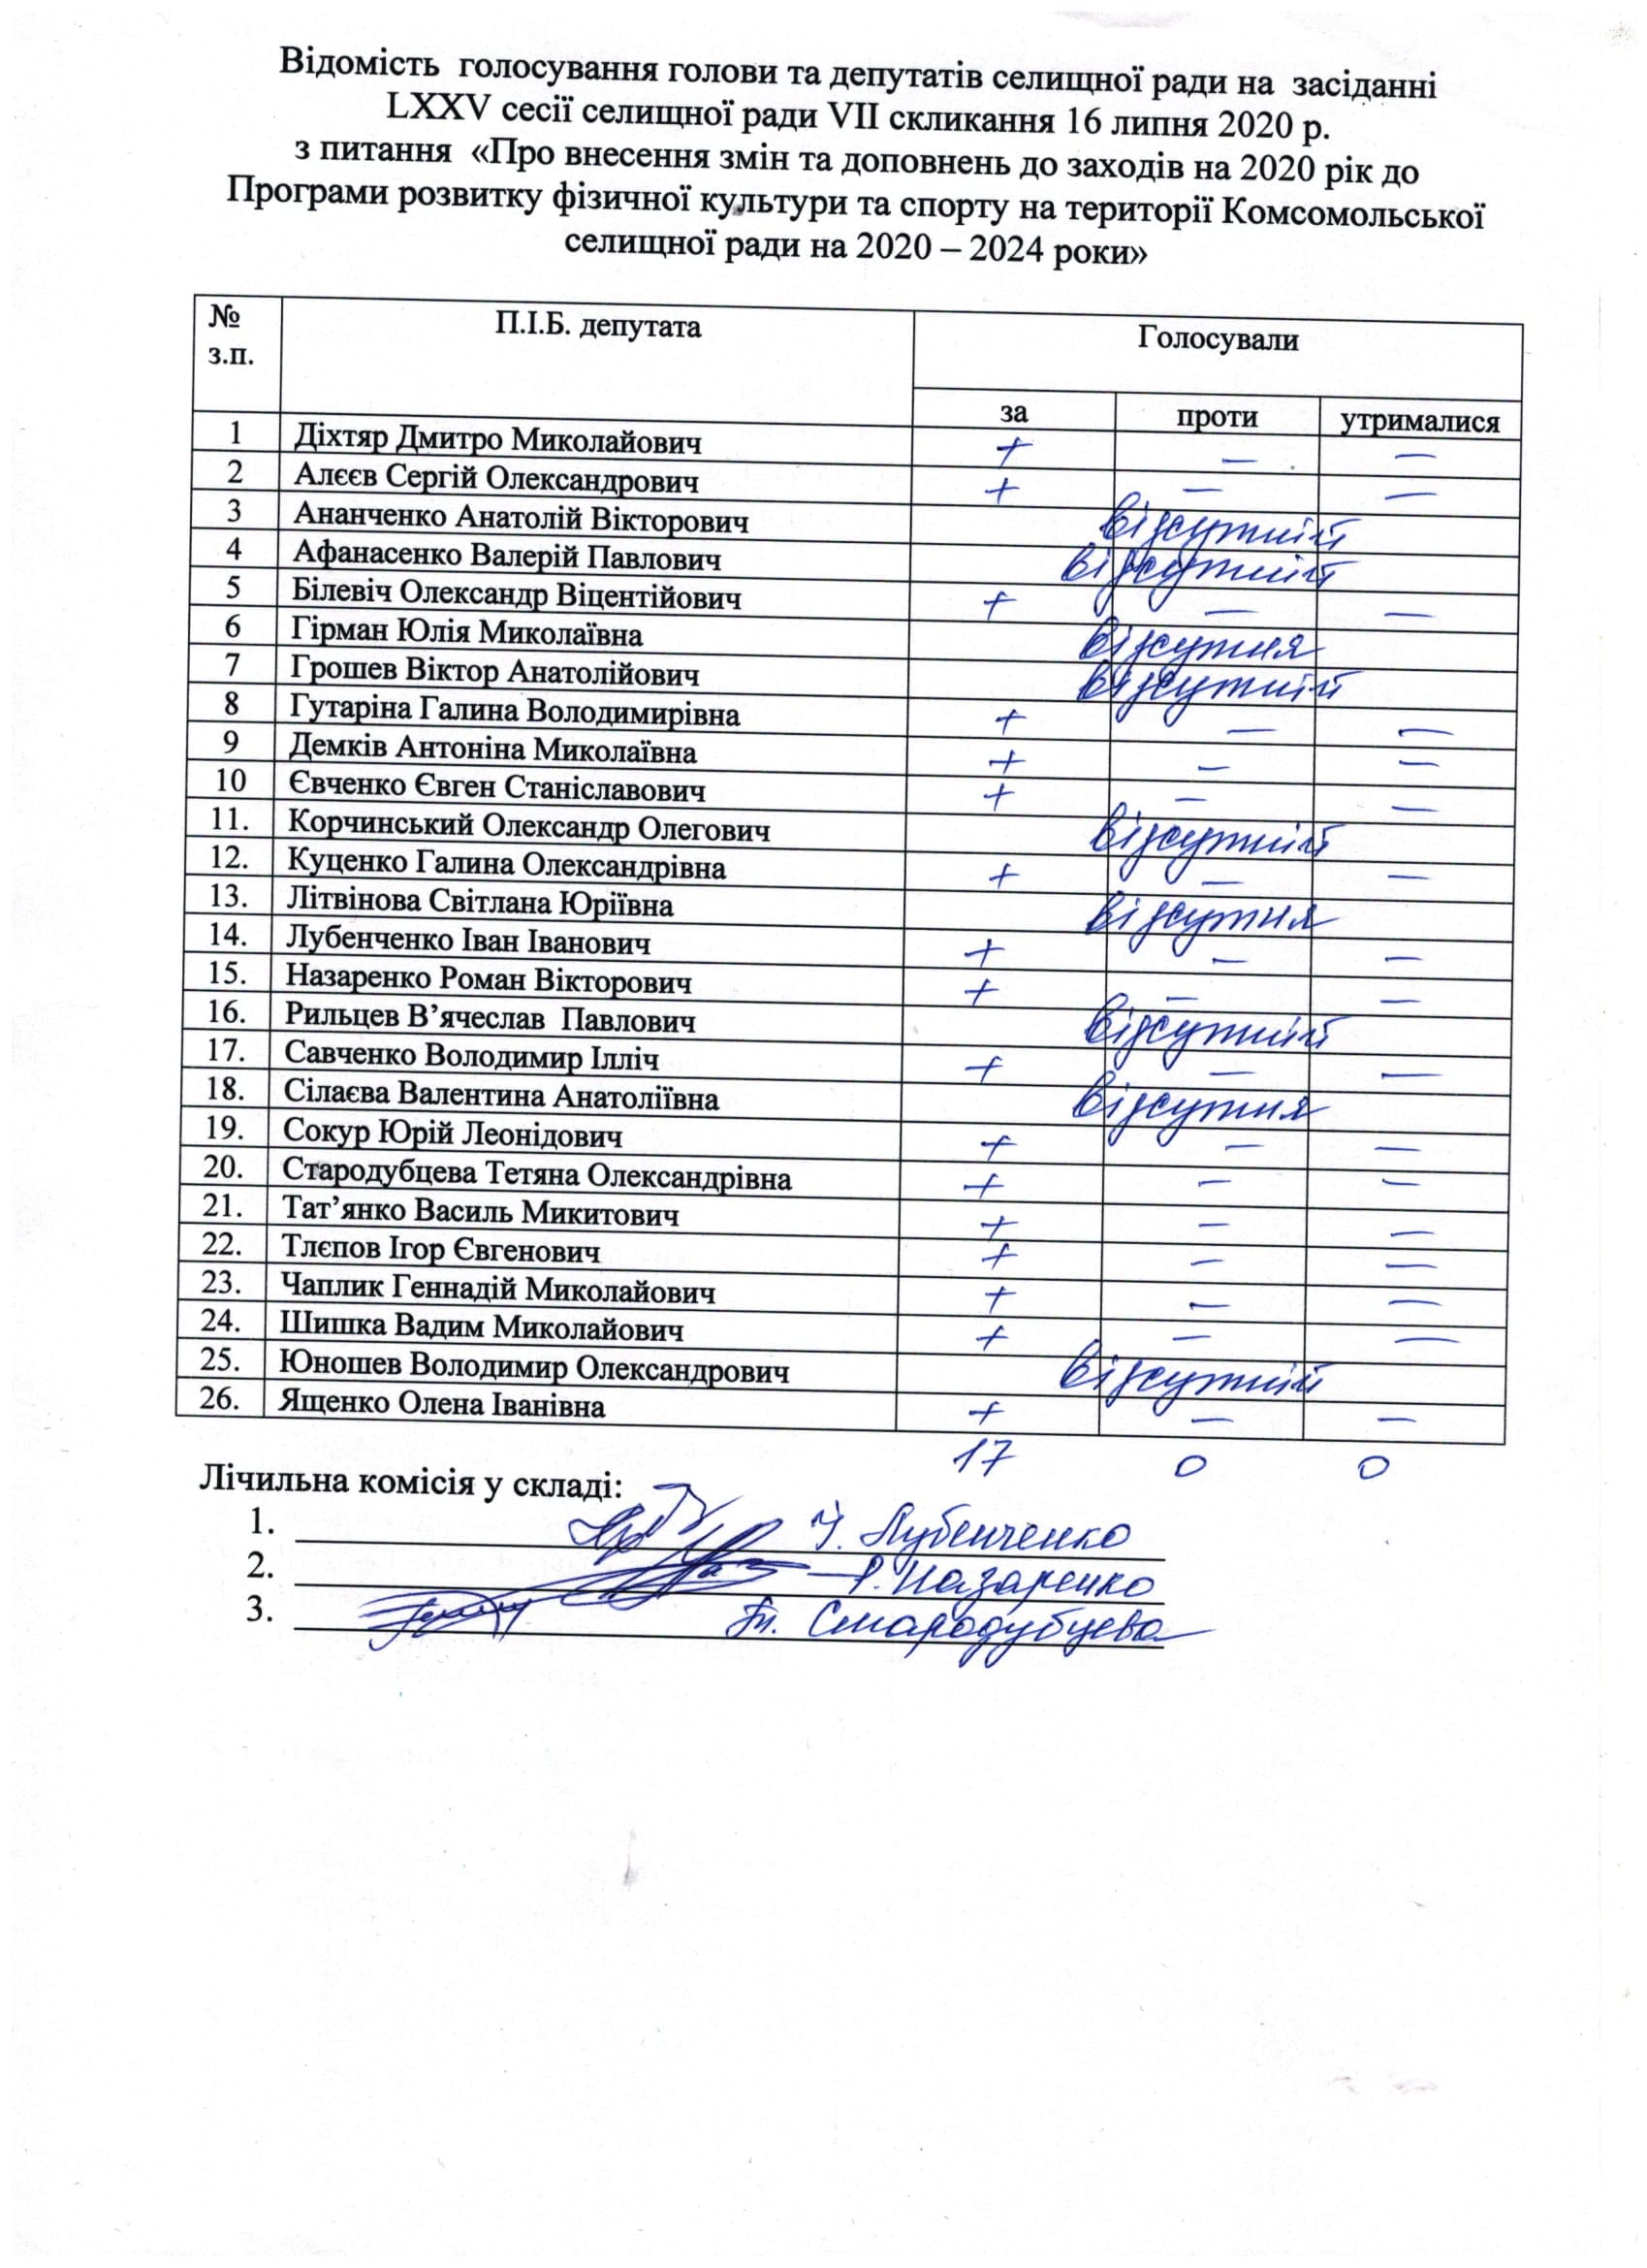 Відомість голосування голови та депутатів селищної ради на засіданні
LXXV сесії селищної ради VII скликання 16 липня 2020 р.
з питання «Про внесення змін та доповнень до заходів на 2020 рік до
Програми розвитку фізичної культури та спорту на території Комсомольської
селищної ради на 2020 – 2024 роки»
№ з.п. П.І.Б. депутата Голосували
за проти утрималися
1 Діхтяр Дмитро Миколайович + — —
2 Алєєв Сергій Олександрович + — —
3 Ананченко Анатолій Вікторович відсутній
4 Афанасенко Валерій Павлович відсутній
5 Білевіч Олександр Віцентійович + — —
6 Гірман Юлія Миколаївна відсутня
7 Грошев Віктор Анатолійович відсутній
8 Гутаріна Галина Володимирівна + — —
9 Демків Антоніна Миколаївна + — —
10 Євченко Євген Станіславович + — —
11. Корчинський Олександр Олегович відсутній
12. Куценко Галина Олександрівна + — —
13. Літвінова Світлана Юріївна відсутня
14. Лубенченко Іван Іванович + — —
15. Назаренко Роман Вікторович + — —
16. Рильцев В’ячеслав Павлович відсутній
17. Савченко Володимир Ілліч + — —
18. Сілаєва Валентина Анатоліївна відсутня
19. Сокур Юрій Леонідович + — —
20. Стародубцева Тетяна Олександрівна + — —
21. Тат’янко Василь Микитович + — —
22. Тлєпов Ігор Євгенович + — —
23. Чаплик Геннадій Миколайович + — —
24. Шишка Вадим Миколайович + — —
25. Юношев Володимир Олександрович відсутній
26. Ященко Олена Іванівна + — —
17 0 0
Лічильна комісія у складі:
1. І. Лубенченко
2. Р. Назаренко
3. Т. Стародубцева